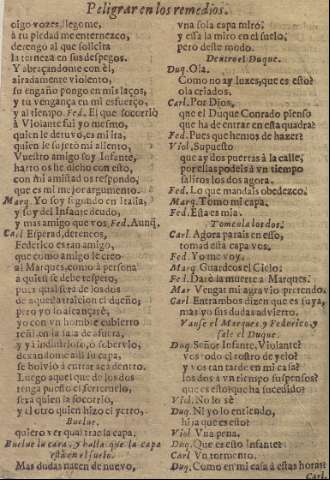 Peligrar en los remedios.
oigo vozes, llegome,
à tu piedad me enternezco,
detengo al que solicita
la terneza en sus despegos.
Y abraçandome con èl,
airadamente violento,
su engaño pongo en mis laços,
y tu vengança en mi esfuerço,
y al tiempo Fed. El que socorrió
à Violante fui yo mesmo,
quien le detuvo, es mi ira,
quien le sujetò mi aliento,
Vuestro amigo soy Infante,
harto os he dicho con esto,
con mi amistad os respondo,
que es mi mejor argumento.
Marq. Yo soy segundo en
y soy del Infante deudo,
y mas amigo que vos. Fed. Aunq.
Carl. Esperad, deteneos,
Federico es tan amigo,
que como amigo le creo
al Marques, como à persona
à quien se debe respeto,
pues qual sera de los dos
de aquesta traicion el dueño;
pero yo lo alcançarè,
yo con un hombre cubierto
reñi en la sala de afuera,
y ya industrioso, ò sobervio,
dexandome allí su capa,
se bolviò à entrar acà dentro.
Luego aquel que de los dos
tenga puesto el ferreruelo,
serà quien la socorriò,
y el otro quien hizo el yerro.
Buelve.
quiero ver qual trae la capa,
Buelve la cara, y halla que la capa
està en el suelo.
Mas dudas nacen de nuevo,
vna sola capa miro,
y essa la miro en el suelo,
pero deste modo.
Dentro el Duque.
Duq. Ola.
Como no ay luzes, que es esto?
ola criados.
Carl. Por Dios,
que el Duque Conrado pienso
que ha de entrar en esta quadra?
Fed. Pues que hemos de hazer?
Viol. Supuesto
que ay dos puertas à la calle,
por ellas podeis à vn tiempo
saliros los dos agora.
Fed. Lo que mandais obedezco.
Marq. Tomo mi capa.
Fed. Esta es mia.
Toman la los dos.
Carl. Agora parais en esso,
tomad esta capa vos,
Fed. Yo me voy.
Marq. Guardeos el Cielo.
Fed. Darè la muerte à Marques.
Mar Vengar mi agravio pretendo.
Carl. Entrambos dizen que es suya,
mas yo sus dudas advierto.
Vanse el Marques y Federico, y
sale el Duque.
Duq. Señor Infante, Violante?
vos todo el rostro de yelo?
y vos tan tarde en mi casa?
los dos à vn tiempo suspensos?
que es esto que ha sucedido?
Viol. No lo sè
Duq. Ni yo lo entiendo,
hija que es esto?
Viol Vna pena.
Duq. Que es esto Infante?
Carl Vn tormento.
Duq. Como en mi casa à estas horas?
Carl.